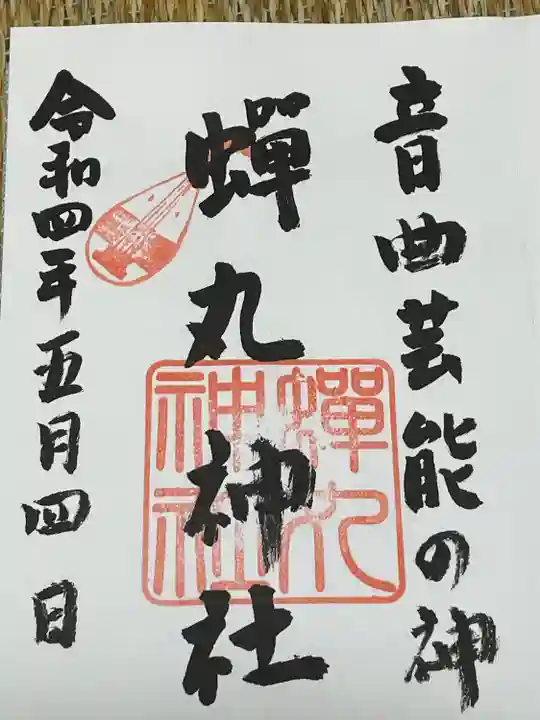 音曲芸能の神
蟬丸神社
蟬丸
神社
令和四年五月四日